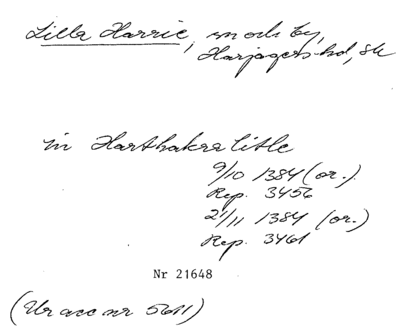 Lilla Harrie, sn och by,
Harjagers hd, Sk
in Harthakra litle
9/10 1384 (or.)
Rep. 3456
21/11 1384 (or.)
Rep. 3461
Nr 21648
(Ur acc nr 5611)